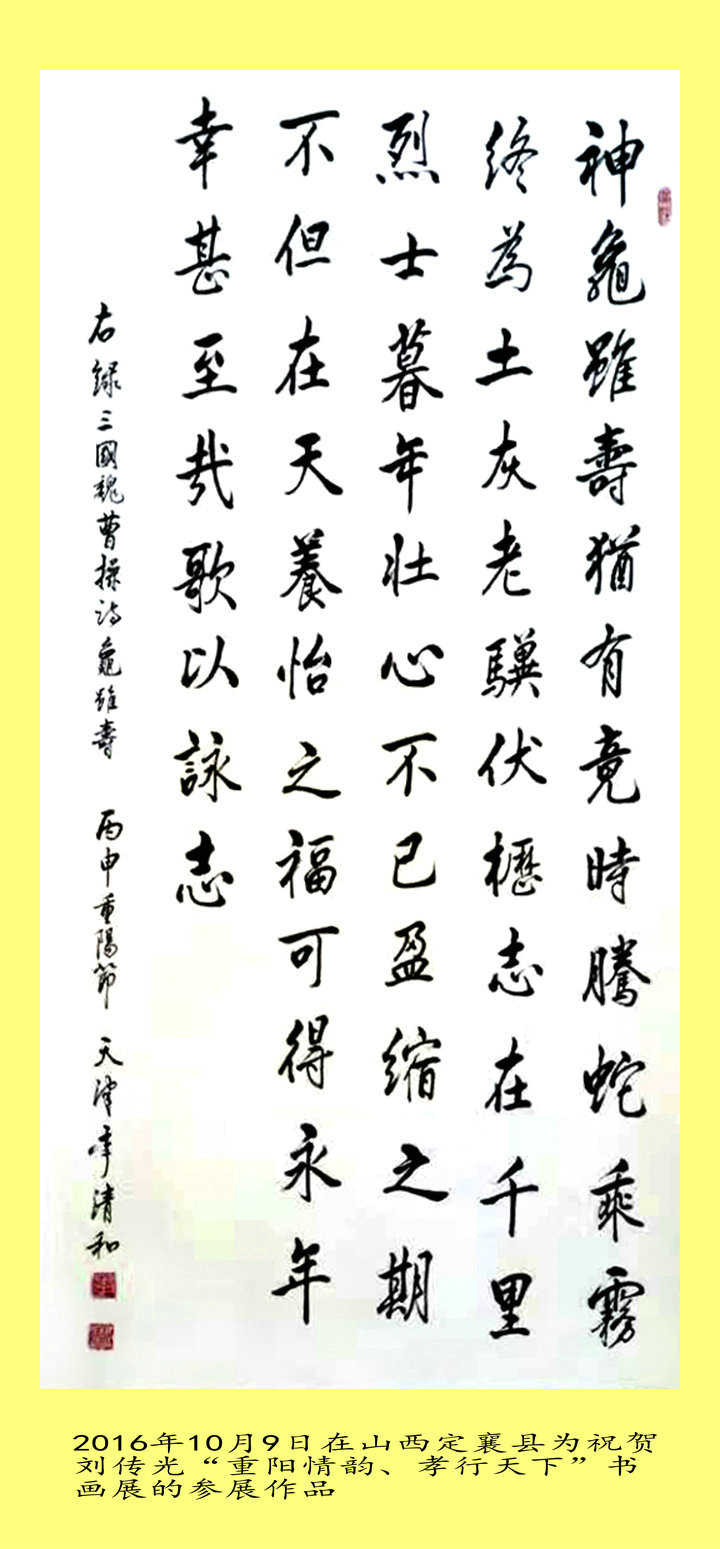 神龜雖壽猶有竟時騰蛇乘霧
終為土灰老驥伏櫪志在千里
烈士暮年壯心不已盈縮之期
不但在天養怡之福可得永年
幸甚至哉歌以詠志
右錄三國魏曹操詩龜雖壽 丙申重陽節 天津 清和
2016年10月9日在山西定襄县为祝贺
刘传光“重阳情韵、孝行天下”书
画展的参展作品